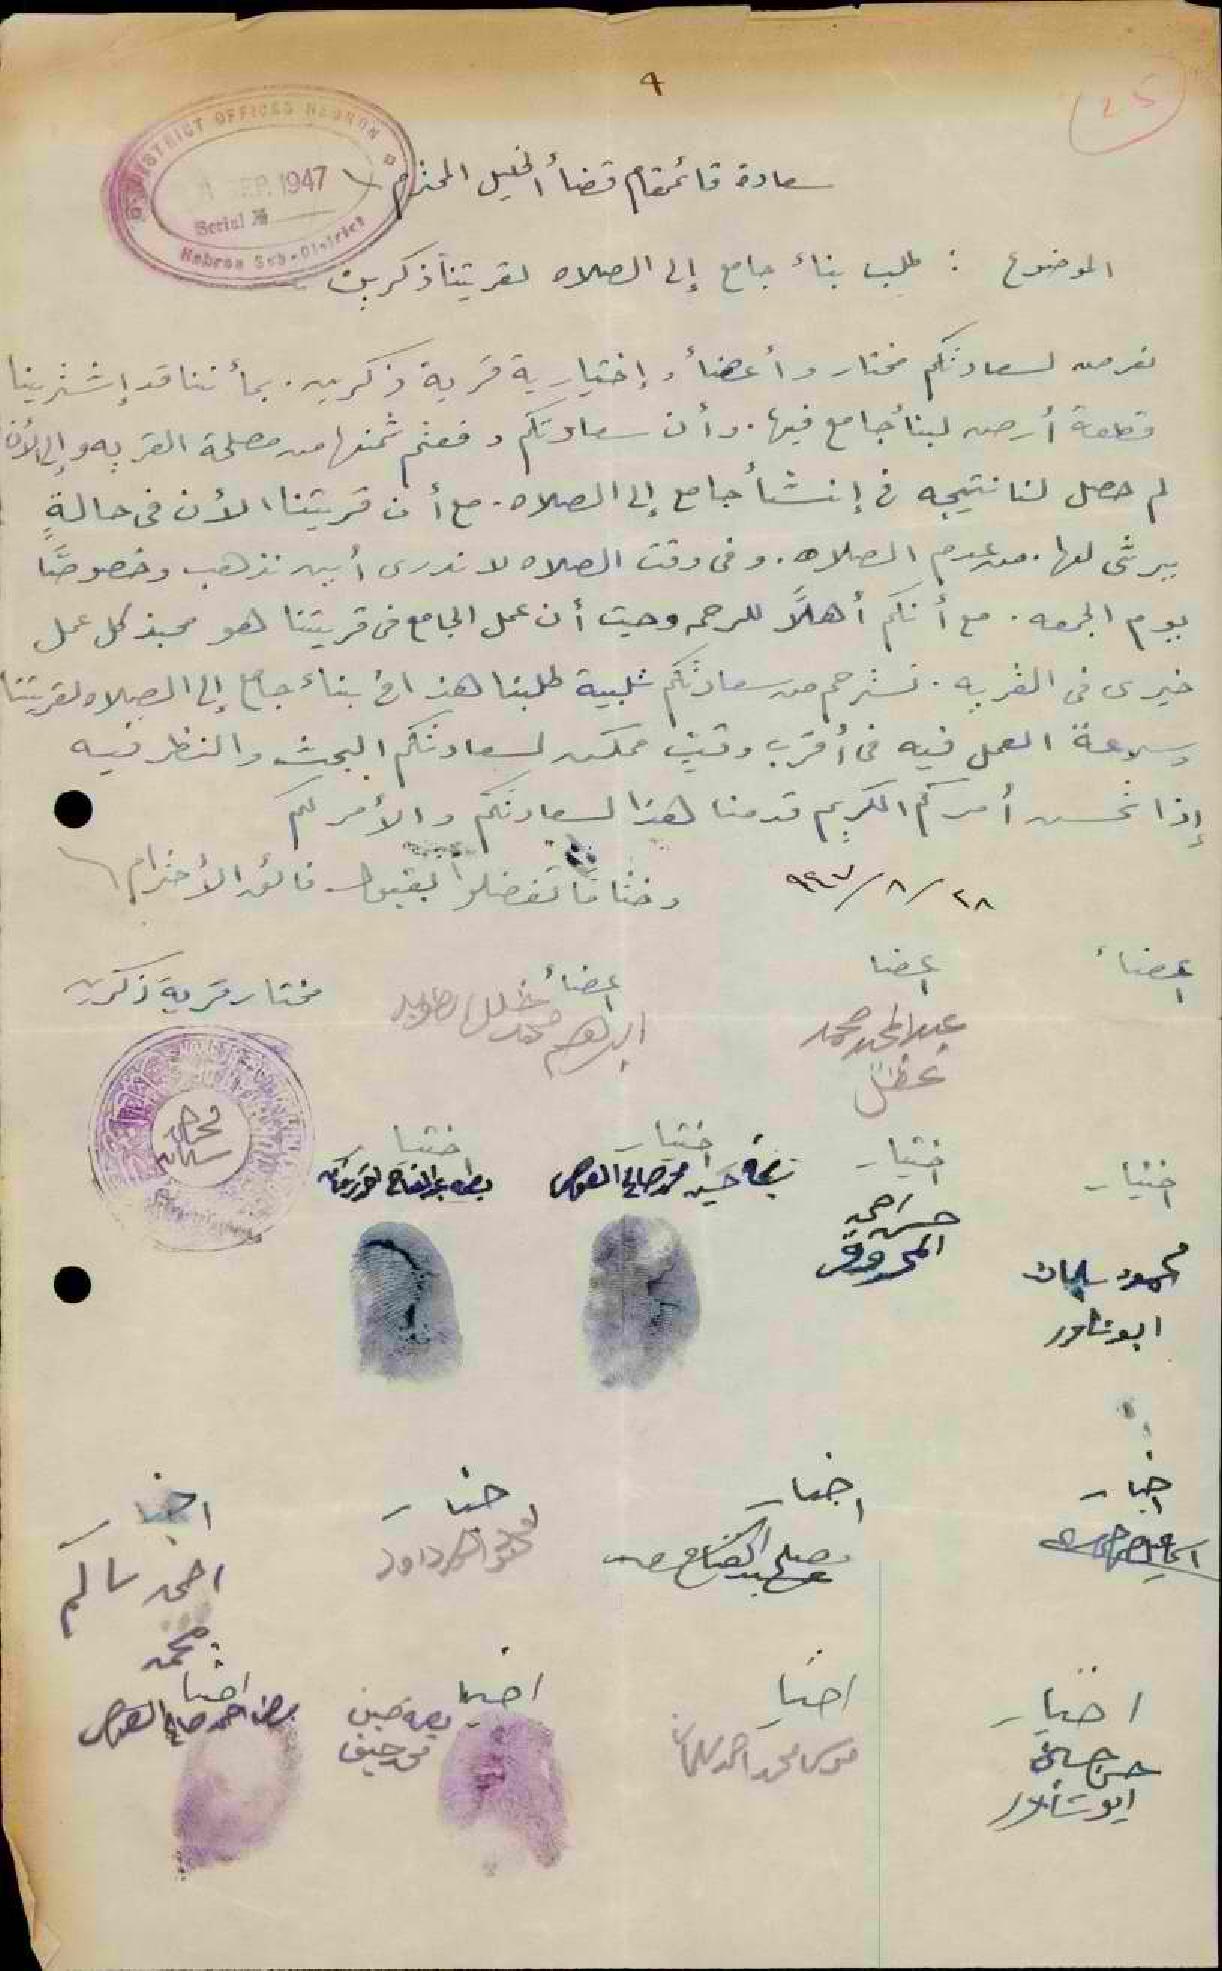 ٩
25
DISTRICT OFFICES HEBRON
SEP. 1947
Serial №
Hebron Sub-District
سعادة قائمقام قضأ الخليل المحترم
الموضوع : طلب بناء جامع إلى الصلاه لقريتنا ذكرين
نعرض لسعادتكم مختار وأعضأ وإختيارية قرية ذكرين . بمأ ننا قد إشترينا
قطعة أرض لبنأ جامع فيها . وأن سعادتكم دفعتم ثمنها من مصلحة القريه وإلى الأن
لم حصل لنا نتيجه في إنشأ جامع إلى الصلاه . مع أن قريتنا الأن في حالةٍ
يرثى لها . من عدم الصلاه . وفي وقت الصلاه لا ندرى أين نذهب وخصوصًا
يوم الجمعه . مع أنكم أهلاً للرحمه وحيث أن عمل الجامع في قريتنا هو محبذ كل عمل
خيرى فى القريه . نسترحم من سعادتكم تلبية طلبنا هذا في بناء جامع إلى الصلاه لقريتنا
وسرعة العمل فيه في أقرب وقت ممكن لسعادتكم البحث والنظر فيه
إذا تحسن أمركم الكريم قدمنا هذا لسعادتكم والأمر لكم
٢٨/٨/٩٤٧ وختامًا تفضلوا بقبول فائق الأحترام
اعضأ اعضا اعضأ مختار قرية ذكرين
عبد المجيد محمد
ابراهيم محمد خليل
اختيار اختيار اختيار اختيار
بصمة حسين محمد صالح القواص
بصمة عبد الفتاح
محمود سليمان
ابو شاور
حسن احمد
اختيار اختيار اختيار اختيار
مصلح عبد الفتاح
داود
احمد سالم
محمد
اختيار اختيار اختيار اختيار
حسن حسين
ابو شاور
موسى محمد احمد سليمان
بصمة حسين
بصمة احمد صالح القواص